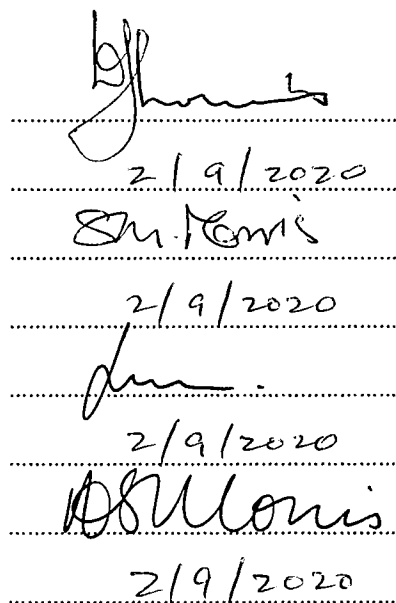 2/9/2020
SM. Morris
2/9/2020
2/9/2020
DSMorris
2/9/2020